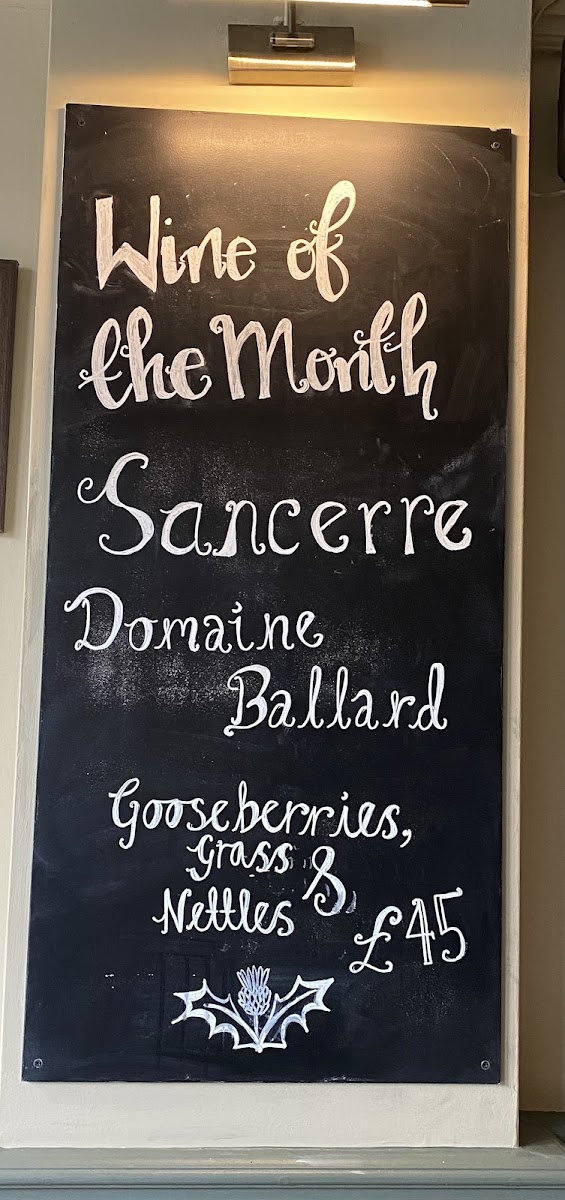 Wine of
the Month
Sancerre
Domaine
Ballard
Gooseberries,
Grass &
Nettles
£45